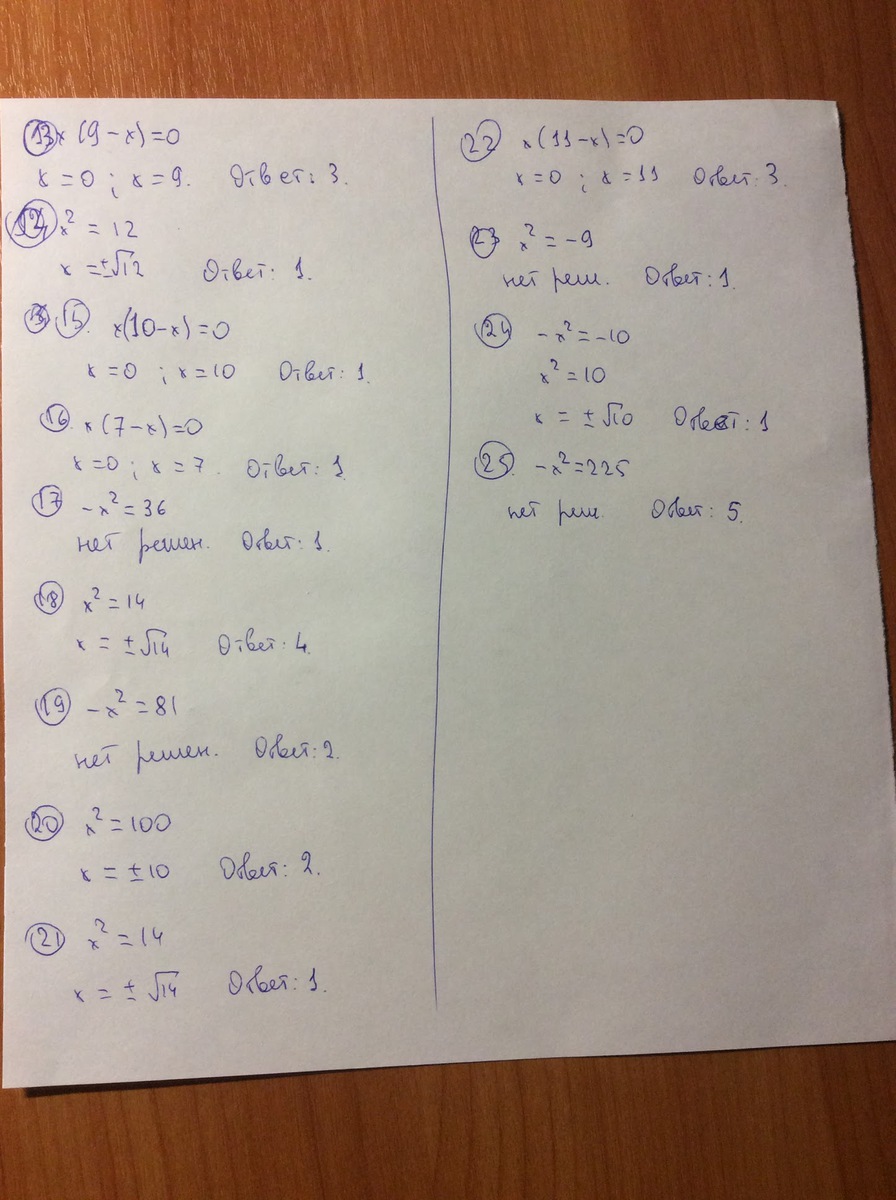 13 x(9-x)=0
x=0; x=9. Ответ: 3.
14 x² = 12
x = ±√12 Ответ: 1.
15. x(10-x)=0
x=0 ; x=10 Ответ: 1.
16. x(7-x)=0
x=0; x=7. Ответ: 1.
17 -x²=36
нет решен. Ответ: 1.
18 x²=14
x = ±√14 Ответ: 4.
19 -x²=81
нет решен. Ответ: 2.
20 x²=100
x = ±10 Ответ: 2.
21 x²=14
x = ±√14 Ответ: 1.
22 x(11-x)=0
x=0 ; x=11 Ответ: 3.
23 x²=-9
нет реш. Ответ: 1.
24 -x²=-10
x²=10
x = ±√10 Ответ: 1
25. -x²=225
нет реш. Ответ: 5.